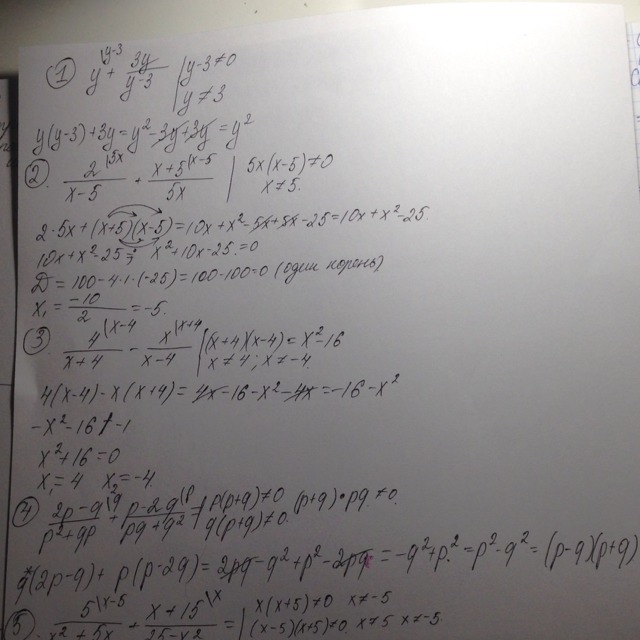 ① y\y-3 + 3y/(y-3) | y-3≠0
y≠3
y(y-3)+3y=y²-3y+3y=y²
② 2\5x/(x-5) + x+5\x-5/(5x) | 5x(x-5)≠0
x≠5.
2·5x+(x+5)(x-5)=10x+x²-5x+5x-25=10x+x²-25.
10x+x²-25= x²+10x-25=0
D=100-4·1·(-25)=100-100=0 (один корень)
x₁=-10/2=-5.
③ 4\x-4/(x+4) - x\x+4/(x-4) | (x+4)(x-4)=x²-16
x≠4; x≠-4.
4(x-4)-x(x+4)=4x-16-x²-4x=-16-x²
-x²-16 /-1
x²+16=0
x₁=4 x₂=-4.
④ 2p-q\q/(p²+qp) + p-2q\p/(pq+q²) = | p(p+q)≠0 (p+q)·pq≠0.
q(p+q)≠0.
q(2p-q)+p(p-2q)=2pq-q²+p²-2pq=-q²+p²=p²-q²=(p-q)(p+q)
⑤ 5\x-5/(x²+5x) + x+15\x/(25-x²) = | x(x+5)≠0 x≠-5
(x-5)(x+5)≠0 x≠5 x≠-5.